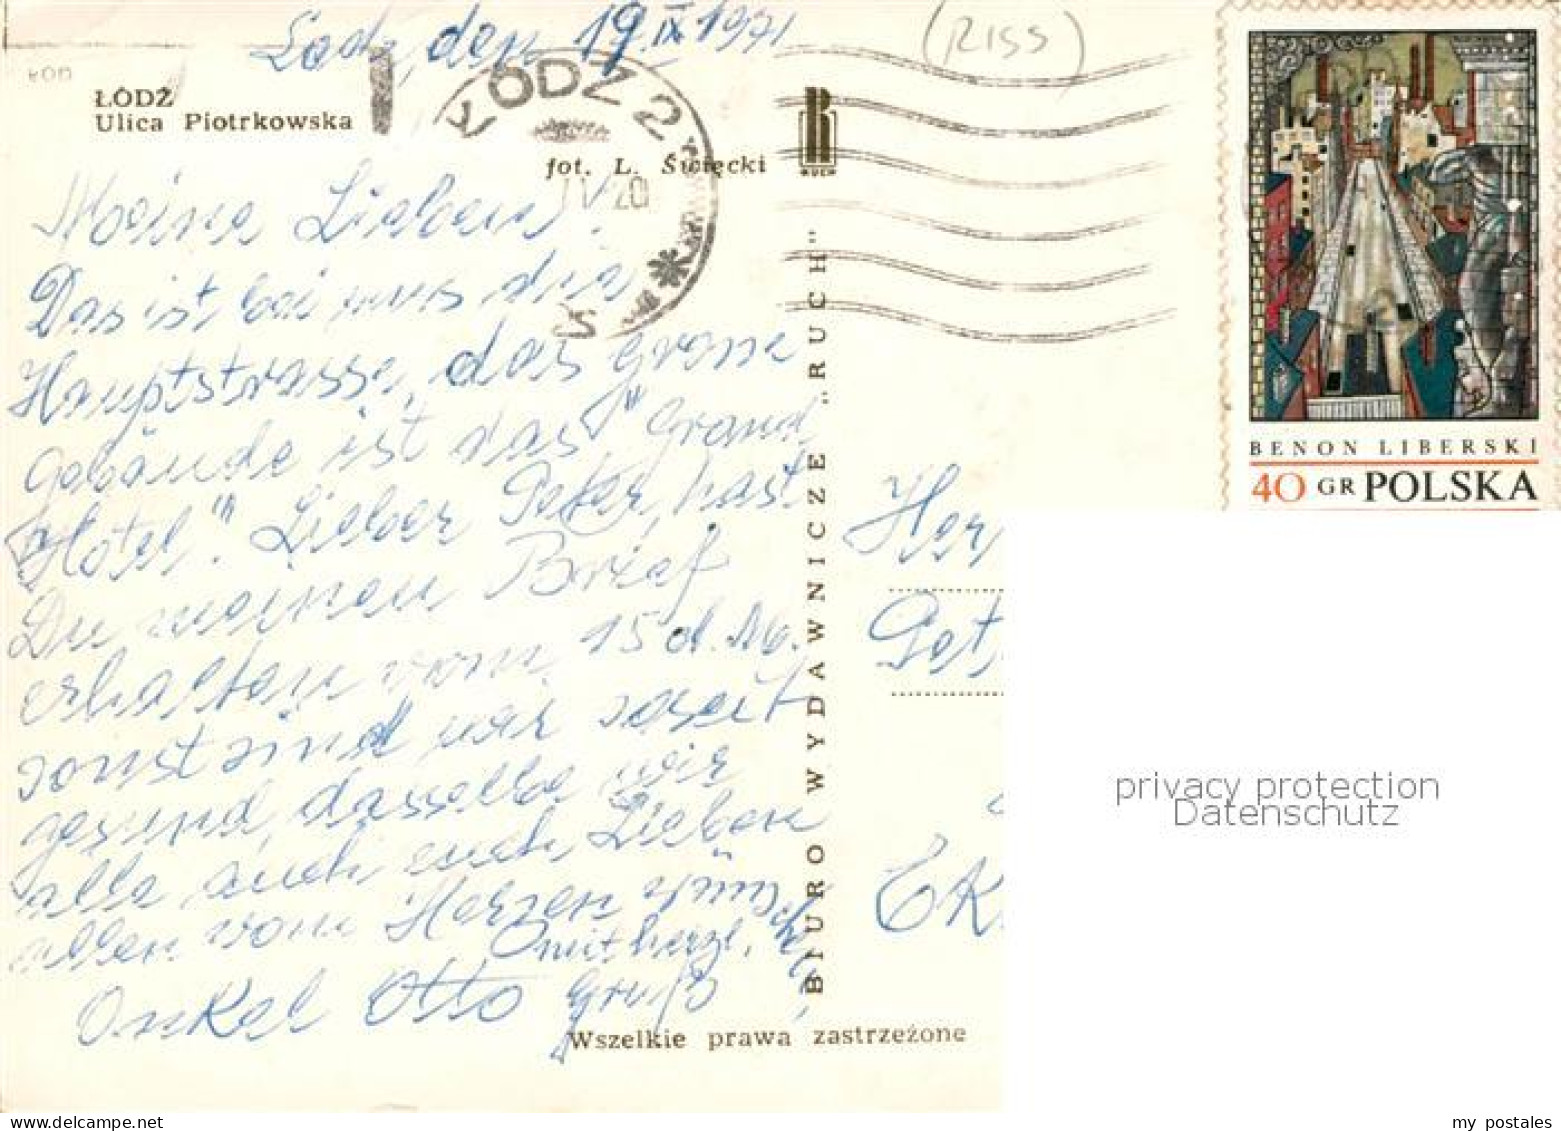 Lodz, den 19.IX 1971
(RISS)
ŁÓDŹ
Ulica Piotrkowska
ŁÓDŹ 2
fot. L. Święcki
RUCH
71 20
Meine Lieben!
Das ist bei uns die
Hauptstrasse, das grosse
Gebäude ist das "Grand
Hotel". Lieber Peter, hast
Du meinen Brief
erhalten vom 15 d. M.
sonst sind wir soweit
gesund, dasselbe wie
alle auch euch Lieben
allen vom Herzen wünschen
mit herzl.
Gruß
Onkel Otto
BIURO WYDAWNICZE "RUCH"
Wszelkie prawa zastrzeżone
BENON LIBERSKI
40 GR POLSKA
Her
Pet
privacy protection
Datenschutz
my postales